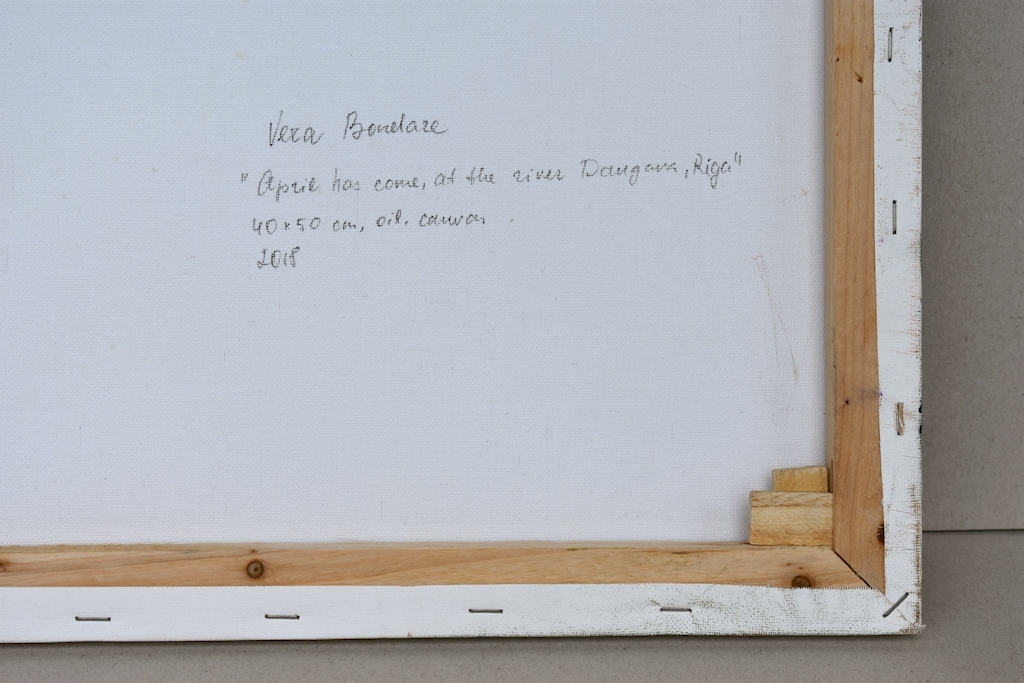 Vera Bondare
" April has come, at the river Daugava, Riga"
40×50 cm, oil. canvas .
2018